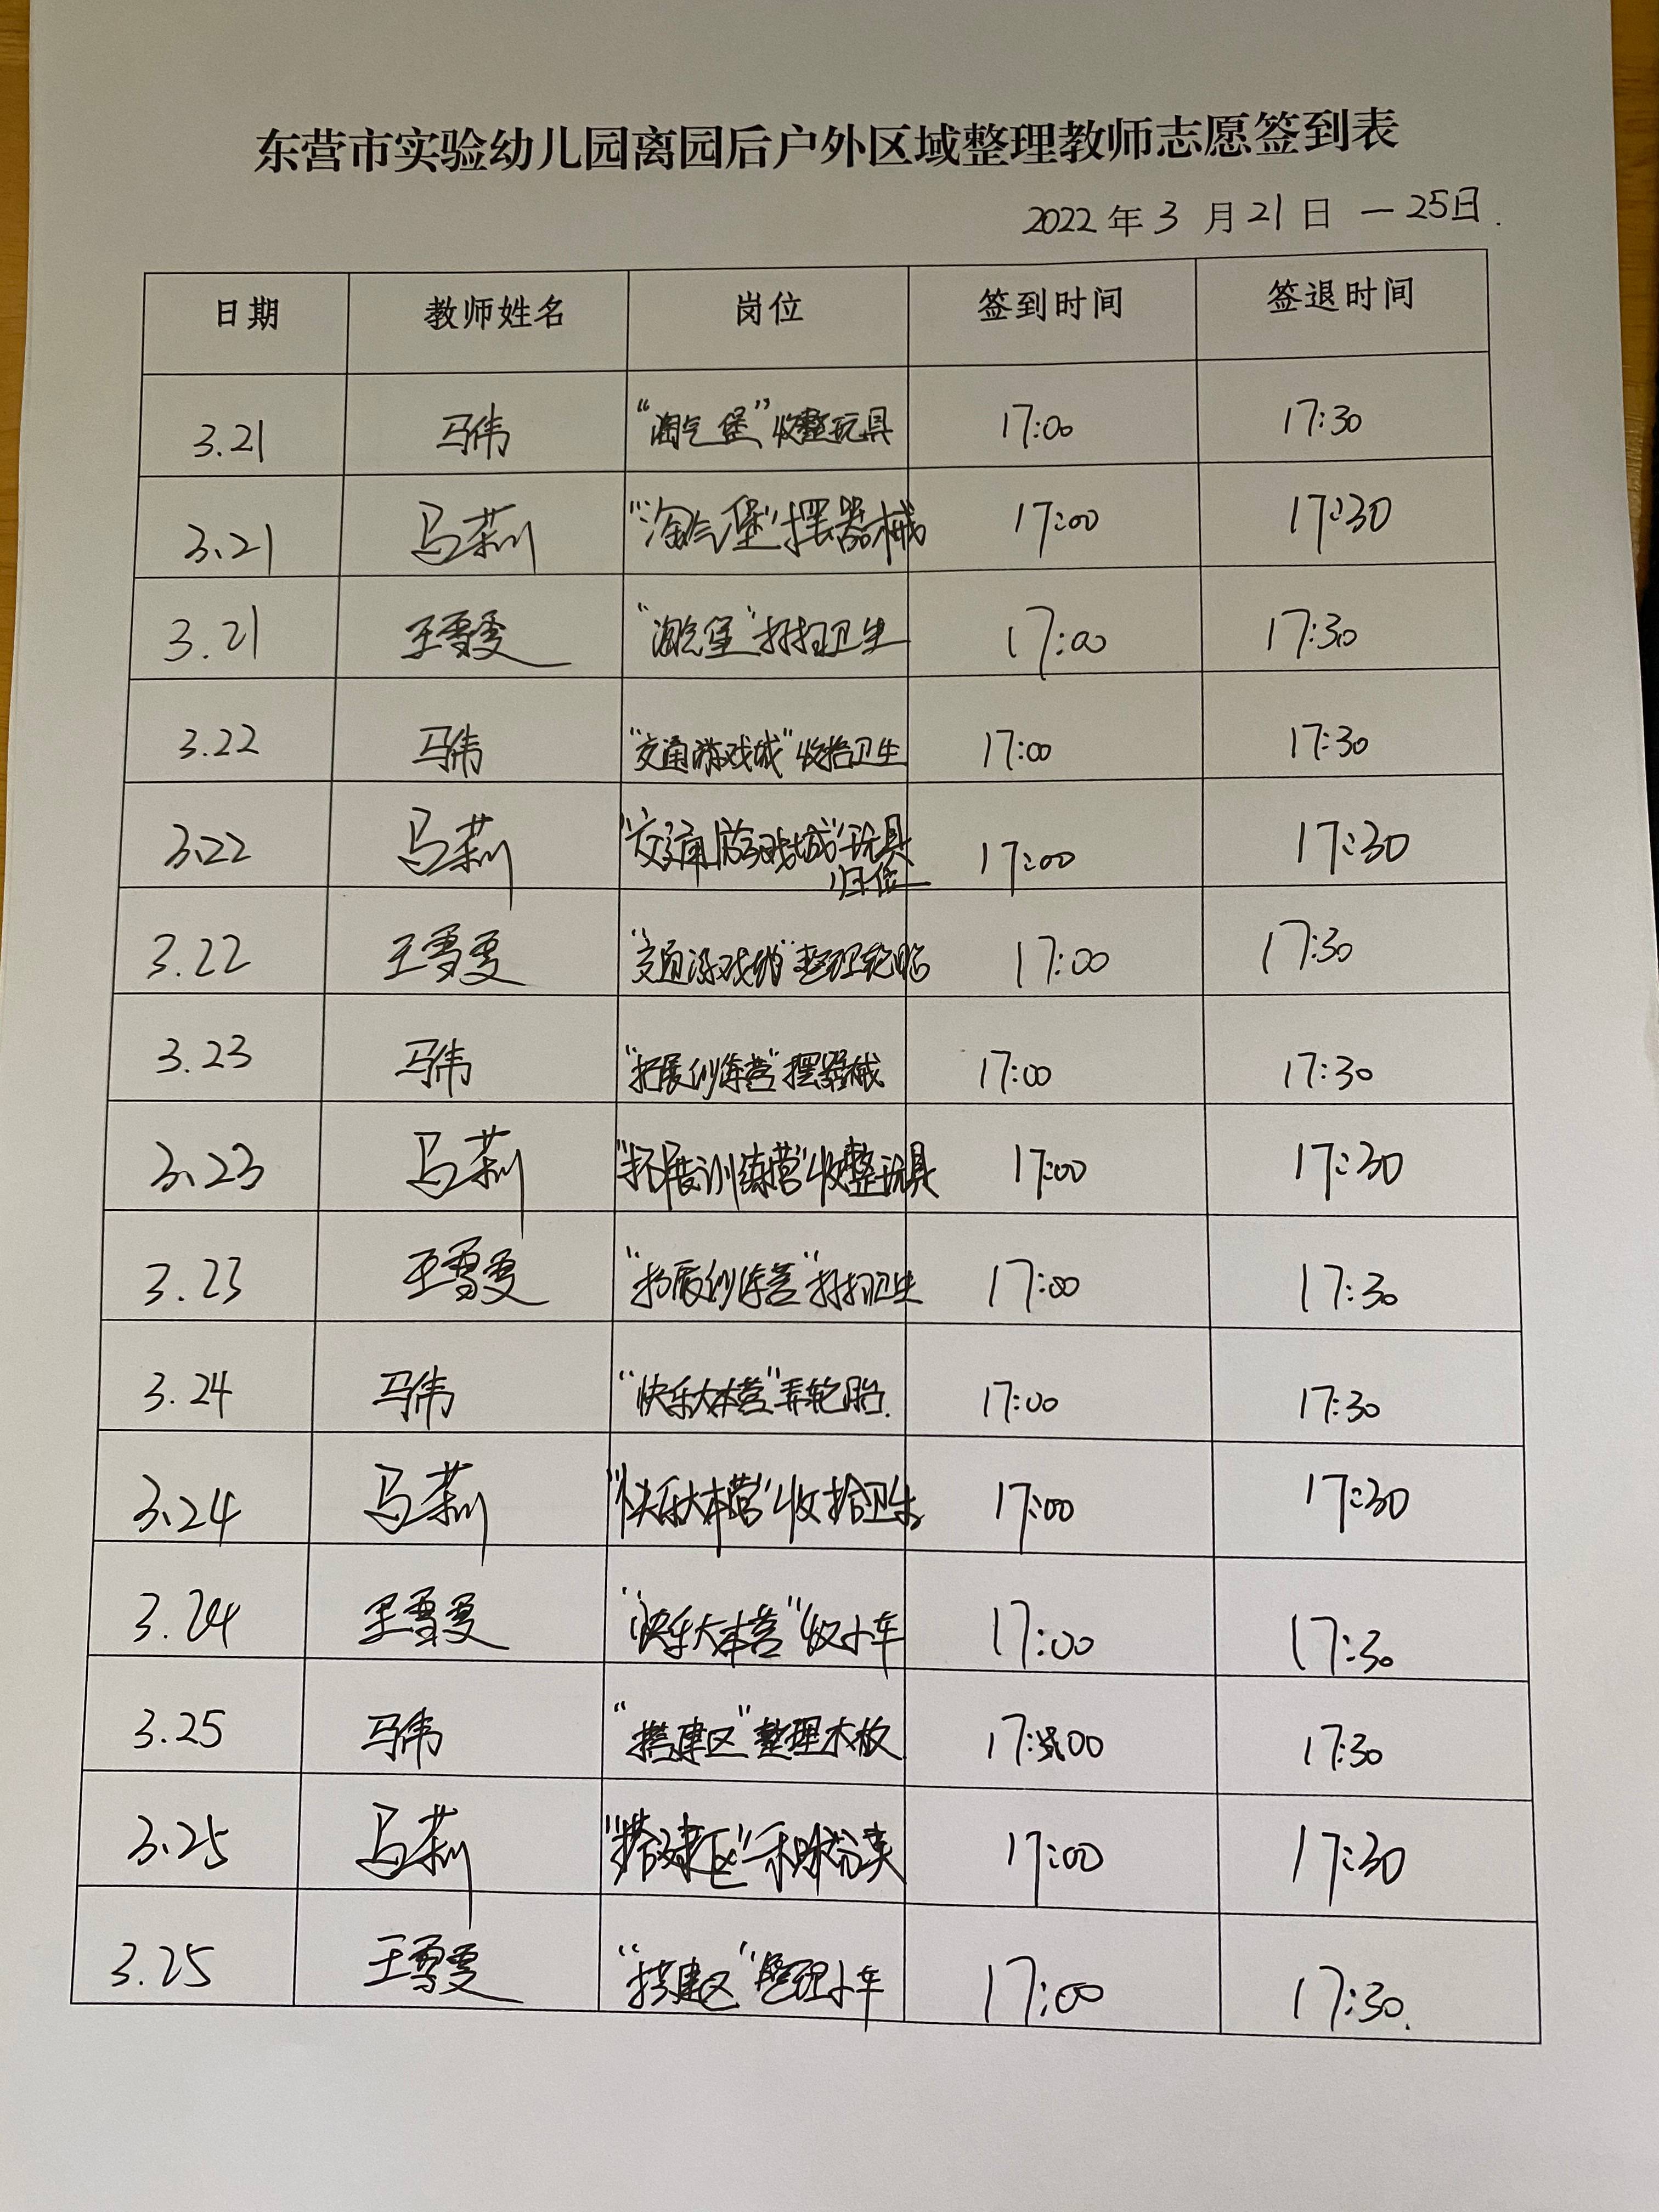 东营市实验幼儿园离园后户外区域整理教师志愿签到表
2022 年 3 月 21 日 — 25日.
日期 教师姓名 岗位 签到时间 签退时间
3.21 马伟 “淘气堡”收整玩具 17:00 17:30
3.21 马莉 “淘气堡”摆器械 17:00 17:30
3.21 王雪雯 “淘气堡”打扫卫生 17:00 17:30
3.22 马伟 “交通游戏城”收拾卫生 17:00 17:30
3.22 马莉 “交通游戏城”玩具 17:00 17:30
归位
3.22 王雪雯 “交通游戏城”整理轮胎 17:00 17:30
3.23 马伟 “拓展训练营”摆器械 17:00 17:30
3.23 马莉 “拓展训练营”收整玩具 17:00 17:30
3.23 王雪雯 “拓展训练营”打扫卫生 17:00 17:30
3.24 马伟 “快乐大本营”弄轮胎. 17:00 17:30
3.24 马莉 “快乐大本营”收拾卫生 17:00 17:30
3.24 王雪雯 “快乐大本营”收小车 17:00 17:30
3.25 马伟 “搭建区”整理木板 17:00 17:30
3.25 马莉 “搭建区”积木分类 17:00 17:30
3.25 王雪雯 “搭建区”整理小车 17:00 17:30.